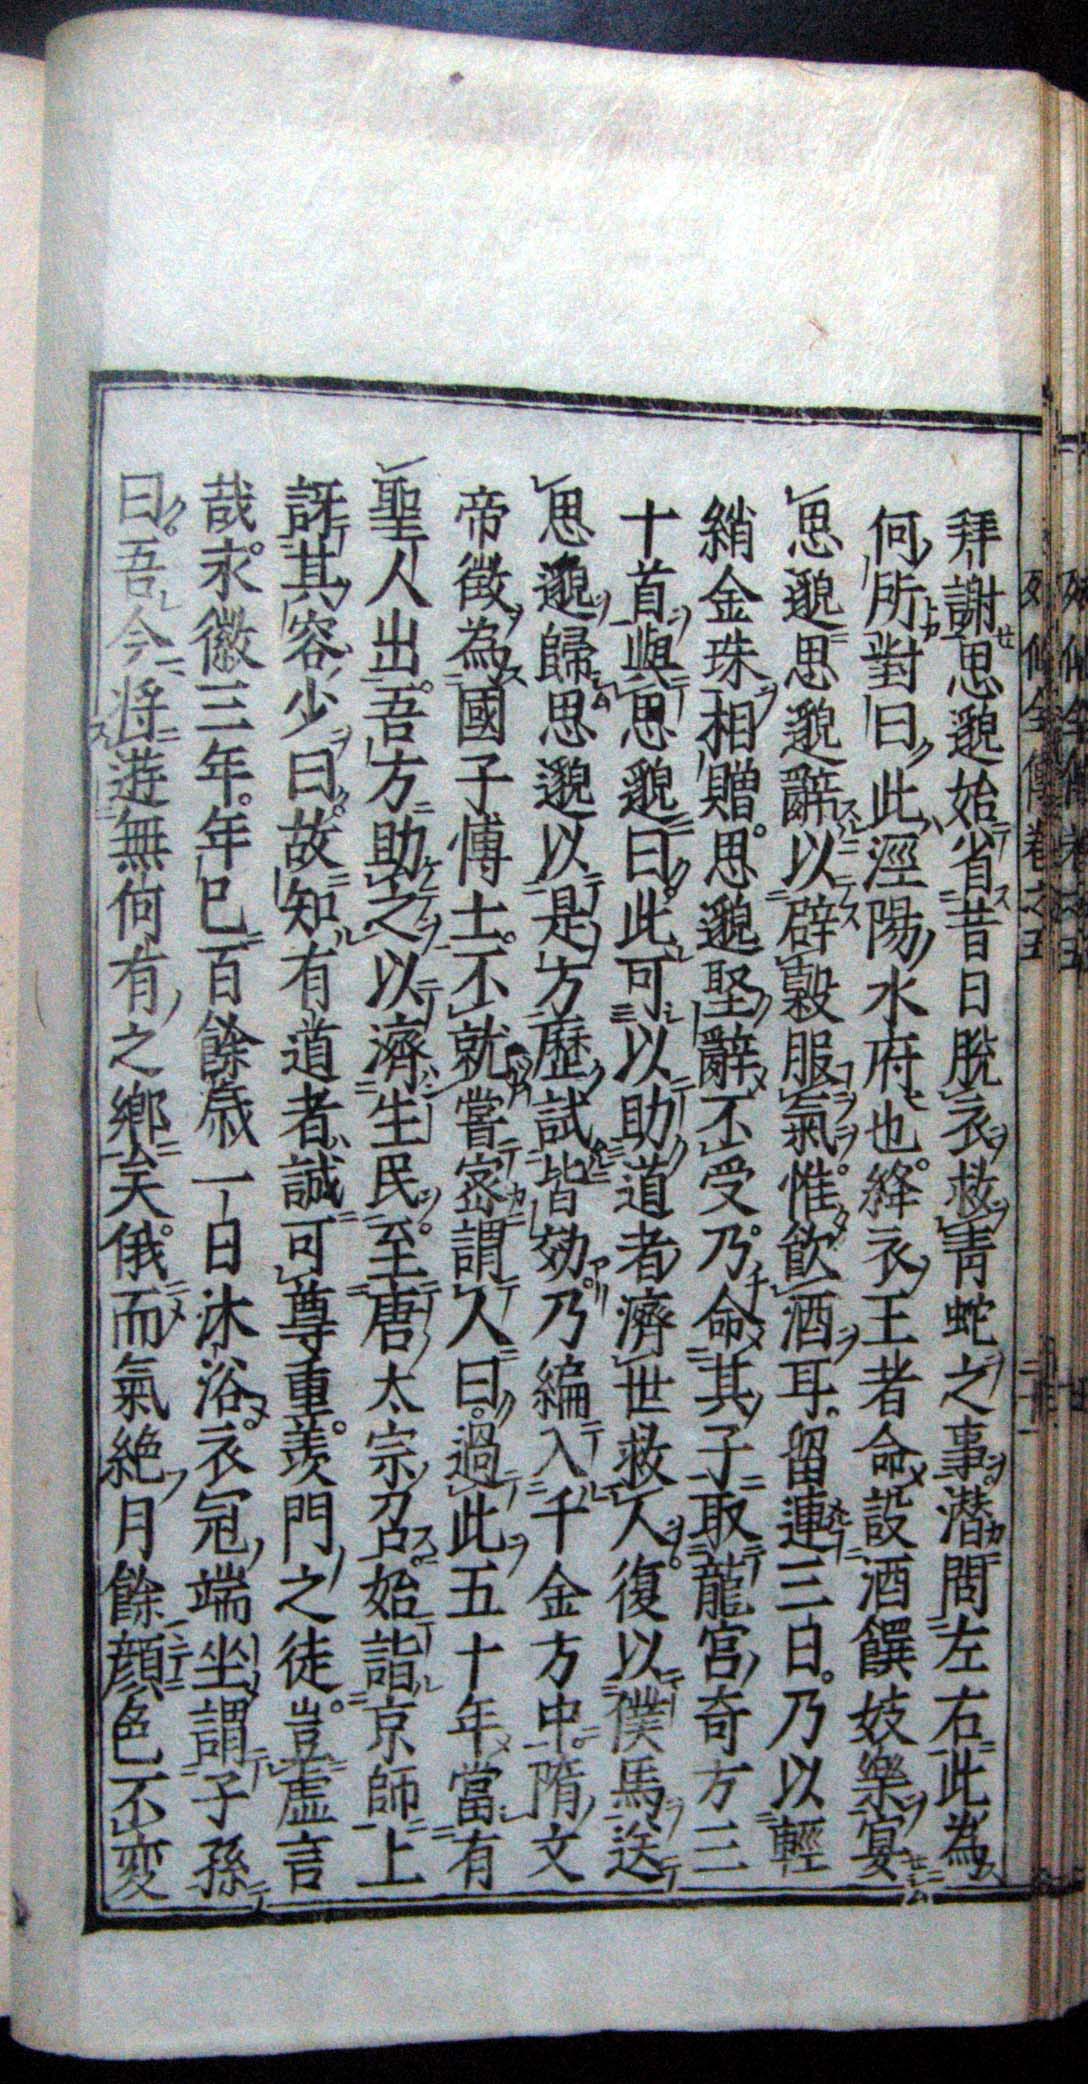 拜謝思邈始省昔日脫衣救青蛇之事。潜問左右此為
何所對曰此涇陽水府也。絳衣王者命設酒饌妓樂宴
思邈思邈辭以辟穀服氣惟飲酒耳。留連三日。乃以輕
綃金珠相贈。思邈堅辭不受。乃命其子取龍宮奇方三
十首與思邈曰。此可以助道者濟世救人。復以僕馬送
思邈歸思邈以是方歷試皆効。乃編入千金方中。隋文
帝徵為國子博士。不就嘗密謂人曰。過此五十年當有
聖人出。吾方助之以濟生民。至唐太宗召。始詣京師上
訝其容少曰。故知有道者誠可尊重。羨門之徒。豈虛言
哉。永徽三年。年已百餘歳一日沐浴。衣冠端坐謂子孫
曰。吾今将遊無何有之鄉矣。俄而氣絶月餘顔色不変